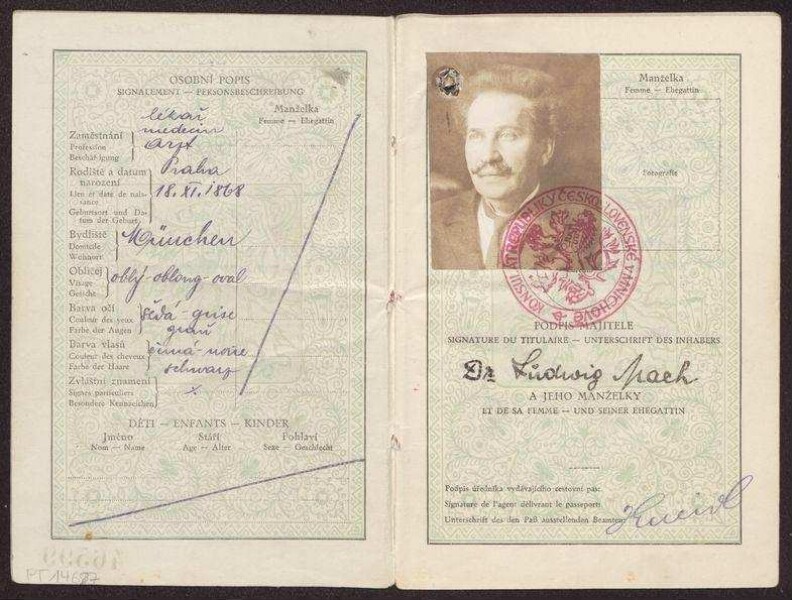 OSOBNÍ POPIS
SIGNALEMENT — PERSONSBESCHREIBUNG
Manželka
Femme — Ehegattin
Zaměstnání
Profession
Beschäftigung
lékař
medecin
Arzt
Rodiště a datum
narození
Lieu et date de nais-
sance
Geburtsort und Da-
tum der Geburt
Praha
18.XI.1868
Bydliště
Domicile
Wohnort
München
Obličej
Visage
Gesicht
oblý-oblong-oval
Barva očí
Couleur des yeux
Farbe der Augen
šedá-grise
grau
Barva vlasů
Couleur des cheveux
Farbe der Haare
černá-noire
schwarz
Zvláštní znamení
Signes particuliers
Besondere Kennzeichen
x
DĚTI — ENFANTS — KINDER
Jméno
Nom — Name
Stáří
Age — Alter
Pohlaví
Sexe — Geschlecht
PT 14687
Manželka
Femme — Ehegattin
Fotografie
KONSULÁT REPUBLIKY ČESKOSLOVENSKÉ V MNICHOVĚ
PODPIS MAJITELE
SIGNATURE DU TITULAIRE — UNTERSCHRIFT DES INHABERS
Dr Ludwig Mach
A JEHO MANŽELKY
ET DE SA FEMME — UND SEINER EHEGATTIN
Podpis úředníka vydávajícího cestovní pas:
Signature de l'agent délivrant le passeport:
Unterschrift des den Paß ausstellenden Beamten: